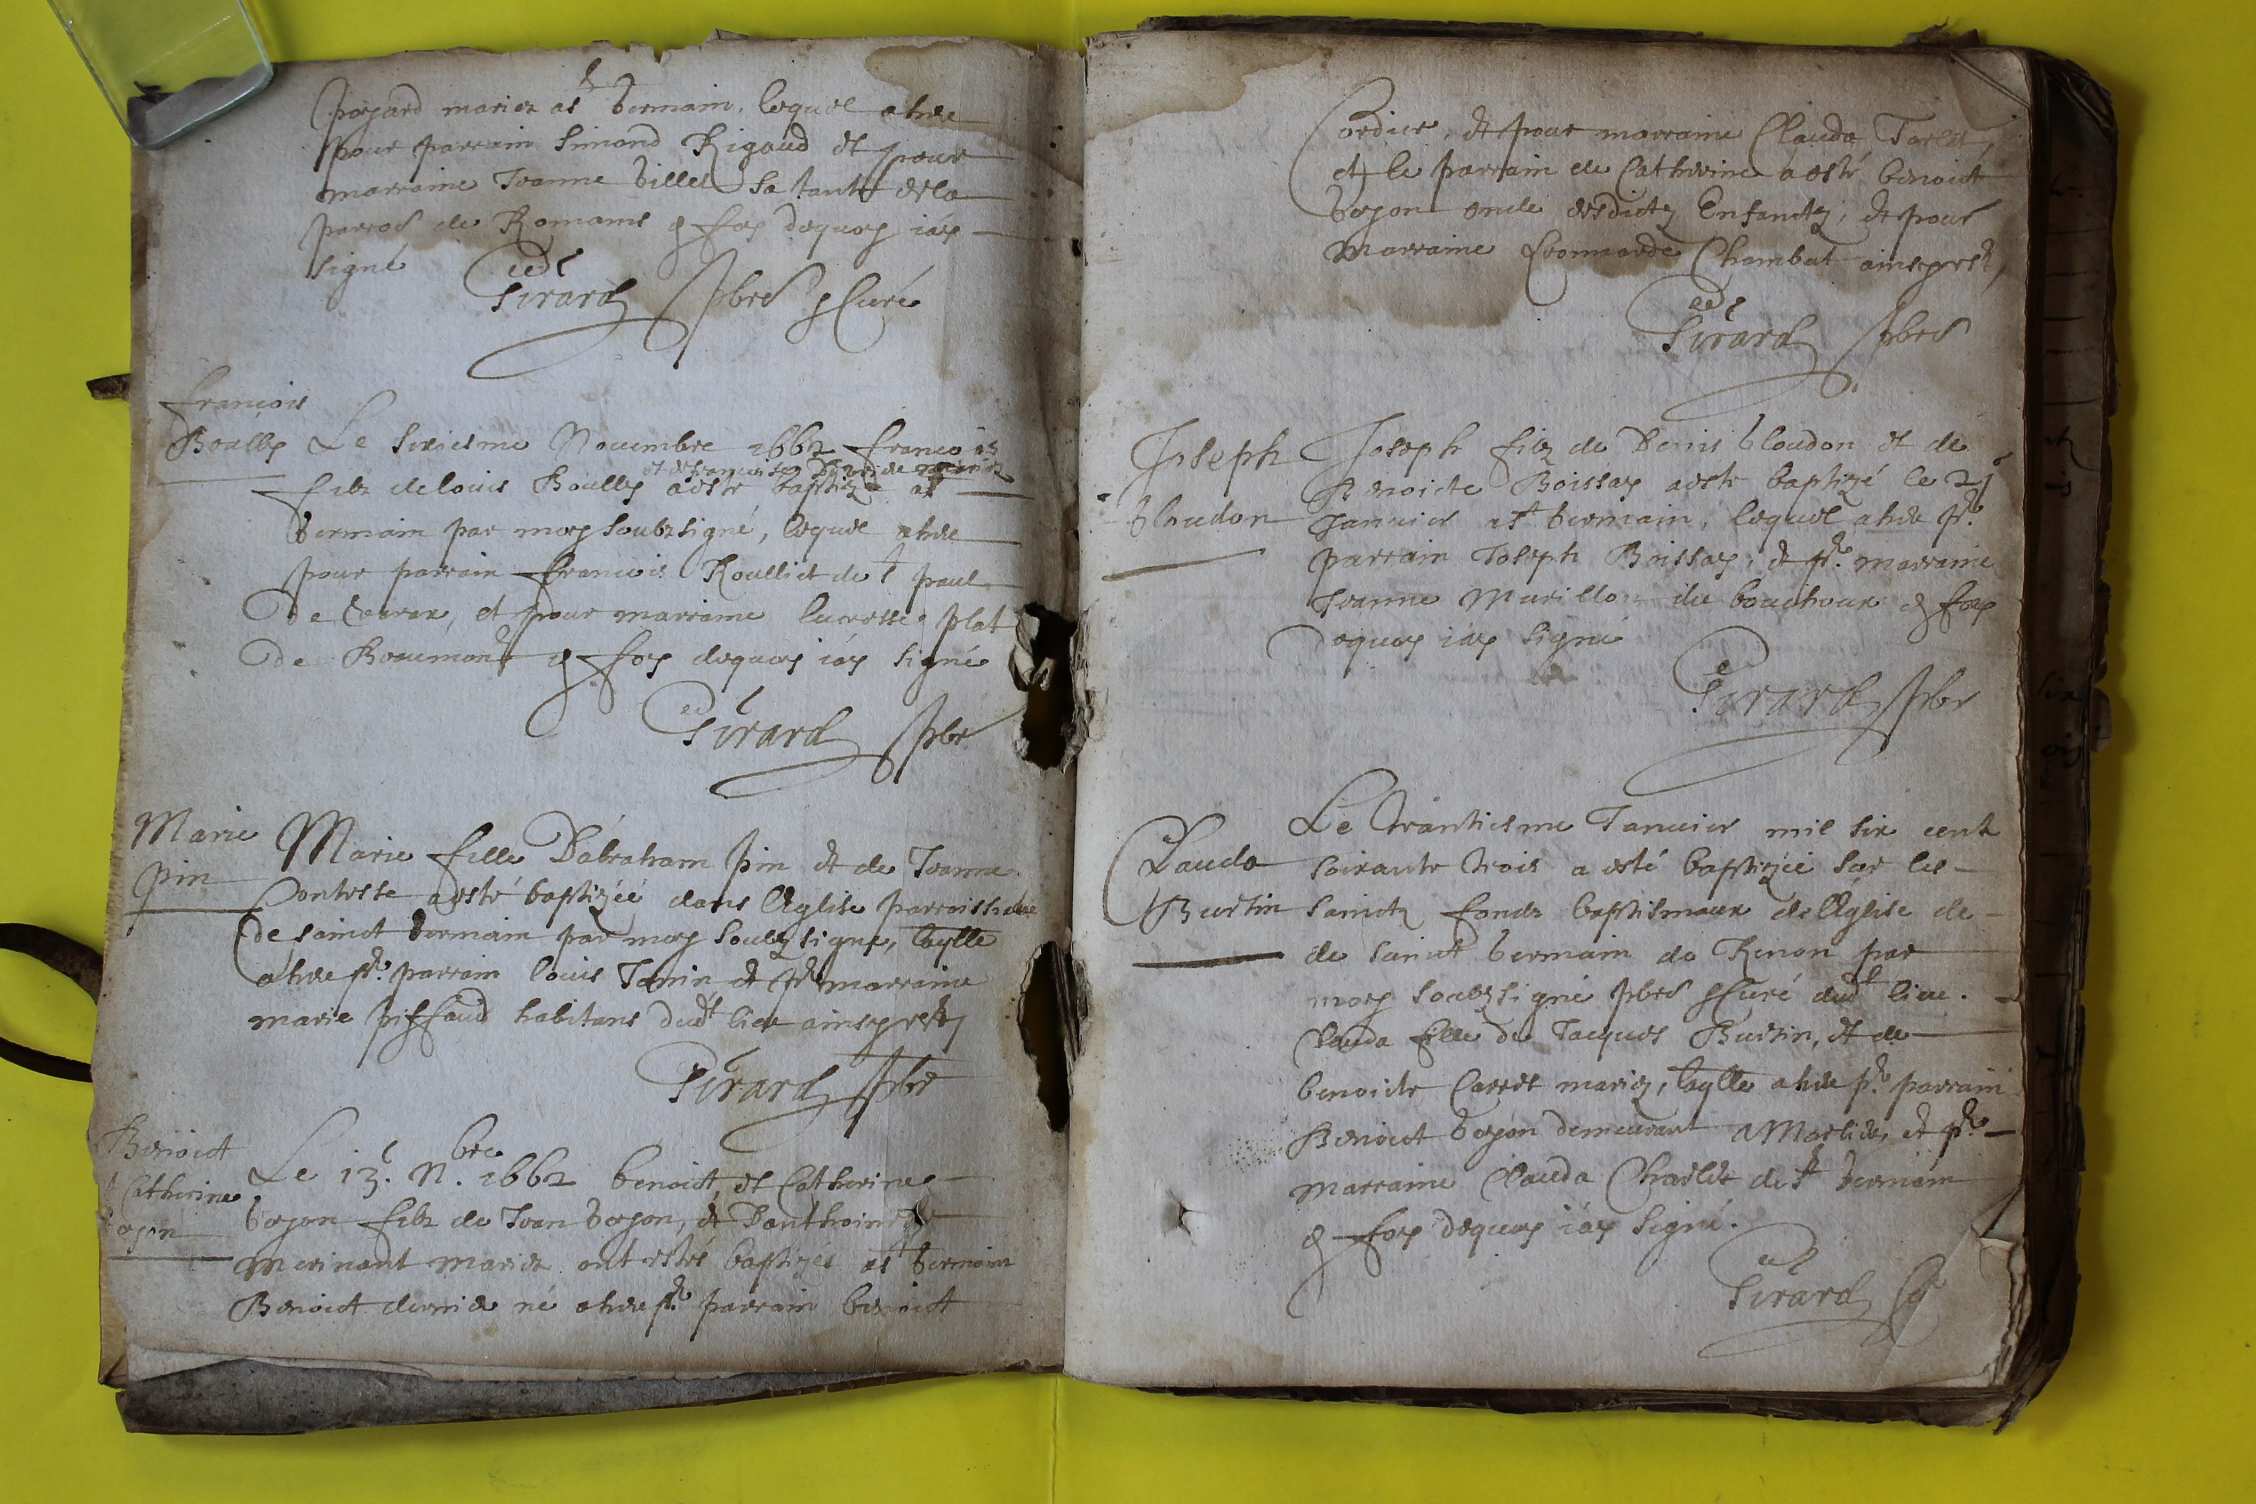 pojard mariez a St Germain, lequel a heu
pour parrain Simond Rigaud et pour
marraine Jeanne Billet sa tante de la
parroe de Romans & foy dequoy i'ay
signé
Girard pbre & Curé
francois
Boully
Le sixiesme Novembre 1662 francois
filz de louis Boully a esté baptizé a St
Germain par moy soubsigné, lequel a heu
pour parrain francois Roulliet de St paul
de Varax, et pour marraine lucresse plat
de Beaumont & foy dequoy i'ay signé
Girard pbre
Marie
pin
Marie fille D'abraham pin et de Jeanne
Conteste a esté baptizée dans l'Eglise parroissialle
de sainct Germain par moy soubzsigné, laqlle
a heu pr. parrain louis Janin et pr marraine
marie piffaud habitans dudt lieu ainsy est
Girard pbre
Benoict
Catherine
Bojon
Le 13e. Nbre. 1662 benoict, et Catherine
bojon filz de Jean bojon, et D'anthoinette
Merinant mariez ont estés baptizés a St Germain
Benoict dernier né a heu pr. parrain benoict
Cordier, et pour marraine Clauda Taret,
et le parrain de Catherine a esté benoict
bojon oncle desdictz Enfantz, et pour
Marraine Leonarde Chambat ainsy est,
Girard pbre
Joseph
bloudon
Joseph filz de Denis bloudon et de
Benoicte Boissay a esté baptizé le 21e
Janvier a St Germain, lequel a heu pr.
parrain Joseph Boissay, et pr. marraine
Jeanne Murillon du bouchoux & foy
dequoy i'ay signé
Girard pbre
Clauda
Burtin
Le trantiesme Janvier mil six cent
soixante trois a esté baptizée sur les
sainctz fondz baptismaux de l'Eglise de
de sainct Germain de Renon par
moy soubzsigné pbre & Curé dudt lieu.
Clauda fille de Jacques Burtin, et de
benoicte Carret mariez, laqlle a heu pr. parrain
Benoict bojon demeurant a Marlieu, et pr.
marraine Clauda Charlet de St Germain
& foy dequoy i'ay signé.
Girard